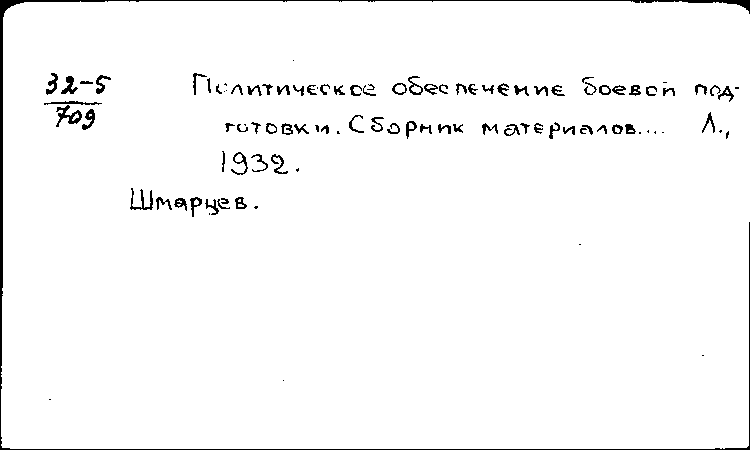 32-5
709
Политическое обеспечение боевой под-
готовки. Сборник материалов.... Л.,
1932.
Шмарцев.